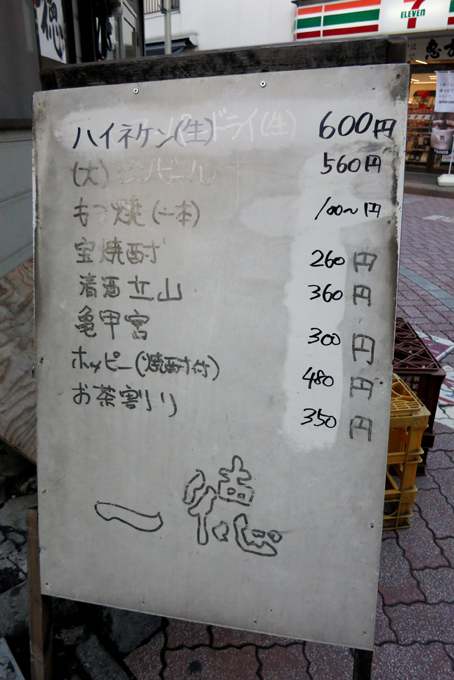 ハイネケン(生)ドライ(生) 600円
(大) ビール 560円
もつ焼(一本) 100〜円
宝焼酎 260円
清酒立山 360円
亀甲宮 300円
ホッピー(焼酎付) 480円
お茶割り 350円
一徳
7
ELEVEN